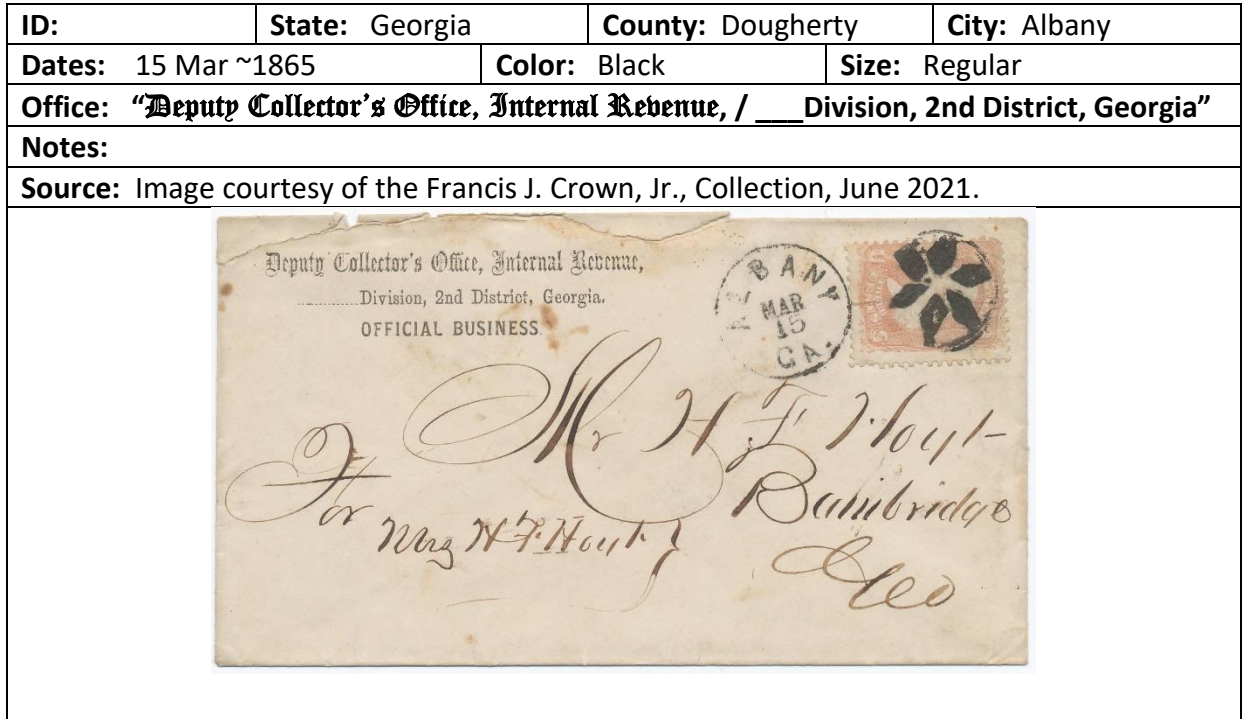 ID: State: Georgia County: Dougherty City: Albany
Dates: 15 Mar ~1865 Color: Black Size: Regular
Office: “Deputy Collector’s Office, Internal Revenue, / ___Division, 2nd District, Georgia”
Notes:
Source: Image courtesy of the Francis J. Crown, Jr., Collection, June 2021.
Deputy Collector's Office, Internal Revenue,
Division, 2nd District, Georgia.
OFFICIAL BUSINESS.
ALBANY
MAR
15
GA.
Mr H F Hoyt
Bainbridge
For
Mrs H F Hoyt
Geo